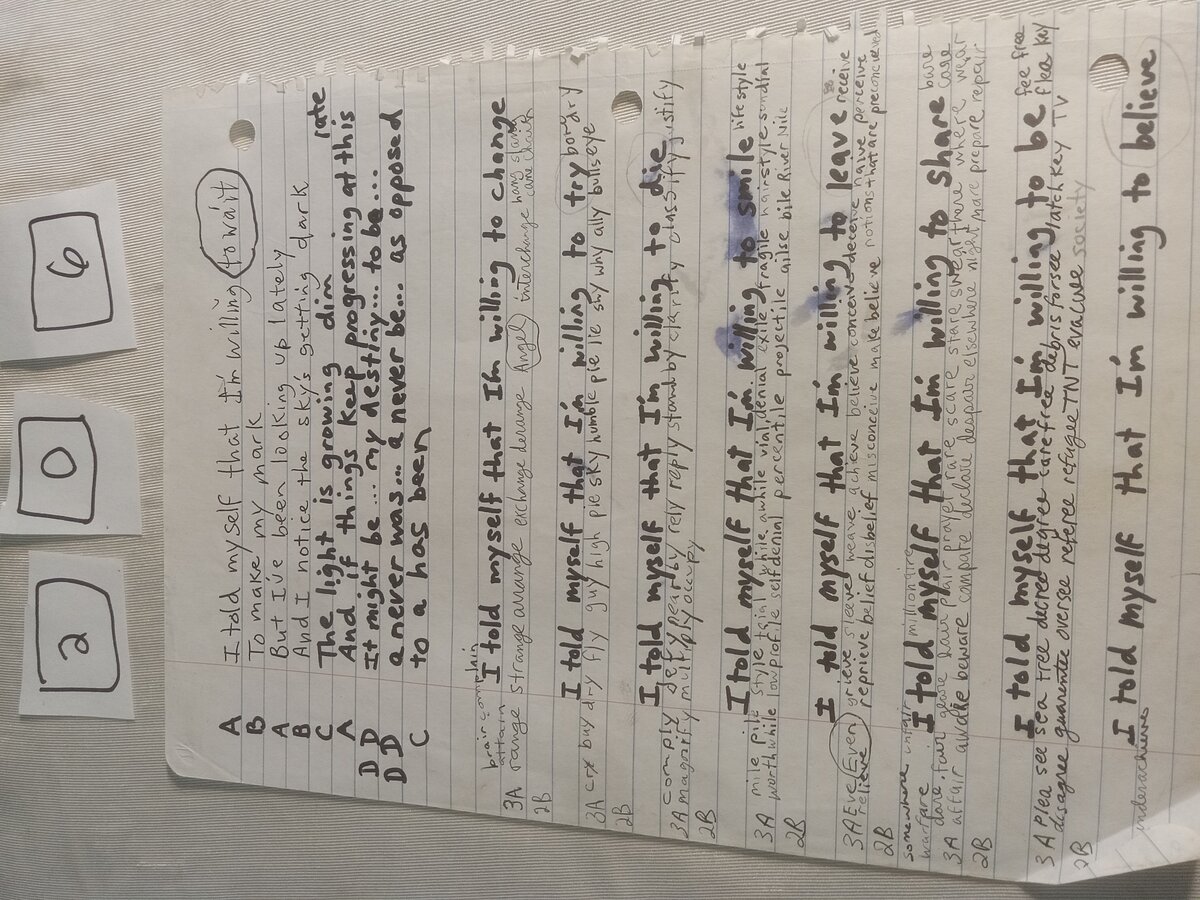 2 0 6
A I told myself that I'm willing to wait
B To make my mark
A But I've been looking up lately
B And I notice the sky's getting dark
C The light is growing dim
A And if things keep progressing at this rate
D D It might be... my destiny... to be...
D D a never was... a never be... as opposed
C to a has been
attain complain
I told myself that I'm willing to change
3A range strange arrange exchange derange Angel interchange hang
2B
I told myself that I'm willing to try
3A cry buy dry fly guy high pie sky humble pie lie shy why ally bullseye
2B
I told myself that I'm willing to die
comply deny nearby rely reply standby clarify classify justify
3A magnify multiply occupy
2B
I told myself that I'm willing to smile lifestyle
mile pile style while awhile vial denial exile fragile hairstyle sundial
3A worthwhile low profile self denial percentile projectile bile River Nile
2B
I told myself that I'm willing to leave receive
3A Eve Even grieve sleeve weave achieve believe conceive deceive naive perceive
relieve reprieve belief disbelief misconceive make believe notions that are preconceived
2B
somewhere unfair millionaire
I told myself that I'm willing to share bare
warfare dare fair glare hair pair prayer rare scare stare swear there where wear care
3A affair beware compare declare despair elsewhere nightmare prepare repair
2B
I told myself that I'm willing to be fee free
3A Plea see sea tree decree degree carefree debris forsee latchkey flea key
disagree guarantee oversee referee refugee TNT evacuee society TV
2B
I told myself that I'm willing to believe
underachiever